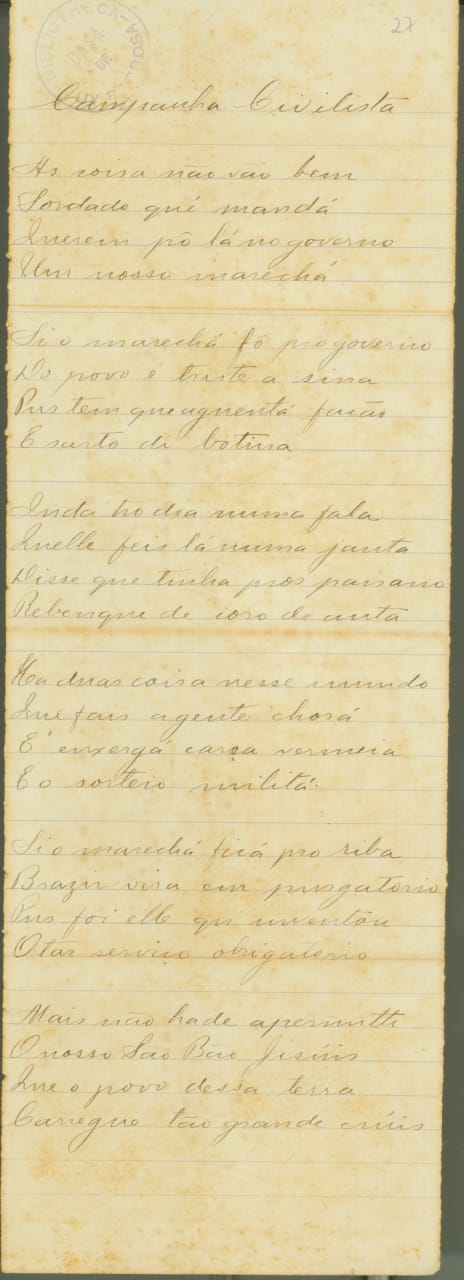 27
BIBLIOTHECA
CASA DE
Campanha Civilista
As coisa não vae bem
Sordado qué mandá
Querem pô lá no governo
Um nosso marechá
Si o marechá fô pro governo
Do povo é triste a sina
Pus tem que aguentá facão
E sarto di botina
Inda ho dia numa fala
Quelle feis lá numa janta
Disse que tinha pros paisano
Rebenque de coro de anta
Ha duas coisa nesse mundo
Que fais agente chorá
É enxergá carça vermeia
E o sorteio militá.
Si o marechá ficá pro riba
Brazir vira em purgatorio
Pus foi elle qui inventou
O tar serviço obrigatorio
Mais não hade apermitti
O nosso São Bão Jisúis
Que o povo dessa terra
Carregue tão grande crúis